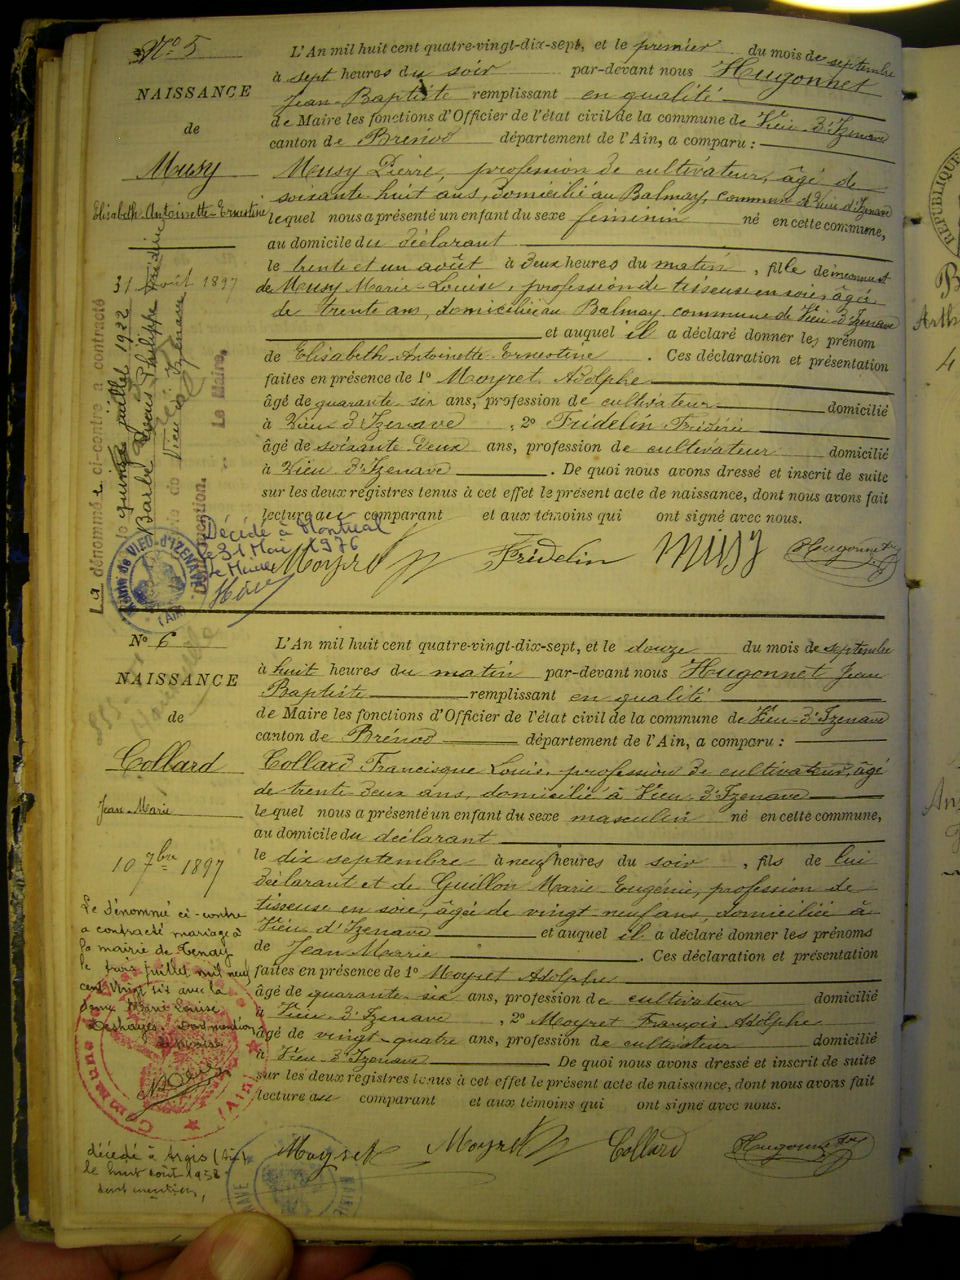 N° 5
NAISSANCE
de
Musy
Elisabeth-Antoinette-Ernestine
31 août 1897
L'An mil huit cent quatre-vingt-dix-sept, et le premier du mois de septembre
à sept heures du soir par-devant nous Hugonnet
Jean-Baptiste remplissant en qualité
de Maire les fonctions d'Officier de l'état civil de la commune de Vieu-d'Izenave
canton de Brénod département de l'Ain, a comparu :
Musy Pierre, profession de cultivateur, âgé de
soixante huit ans, domicilié au Balmay, commune de Vieu d'Izenave
lequel nous a présenté un enfant du sexe féminin né en cette commune,
au domicile du déclarant
le trente et un août à deux heures du matin, fille de inconnu et
de Musy Marie-Louise, profession de tisseuse en soie, âgée
de trente ans, domiciliée au Balmay, commune de Vieu-d'Izenave
et auquel il a déclaré donner les prénom
de Elisabeth-Antoinette-Ernestine. Ces déclaration et présentation
faites en présence de 1° Moyret Adolphe
âgé de quarante six ans, profession de cultivateur domicilié
à Vieu d'Izenave, 2° Fridelin Frédéric
âgé de soixante deux ans, profession de cultivateur domicilié
à Vieu d'Izenave. De quoi nous avons dressé et inscrit de suite
sur les deux registres tenus à cet effet le présent acte de naissance, dont nous avons fait
lecture au comparant et aux témoins qui ont signé avec nous.
La dénommée ci-contre a contracté
le quinze juillet 1922
Barbe Louis Philippe Frédéric
Vieu d'Izenave
Le Maire,
Décédé à Montréal
le 31 Mai 1976
Le Maire
Mairie de VIEU-D'IZENAVE (Ain)
Moyret Fridelin Musy Hugonnet
N° 6
NAISSANCE
de
Collard
Jean-Marie
10 7bre 1897
L'An mil huit cent quatre-vingt-dix-sept, et le douze du mois de septembre
à huit heures du matin par-devant nous Hugonnet Jean
Baptiste remplissant en qualité
de Maire les fonctions d'Officier de l'état civil de la commune de Vieu-d'Izenave
canton de Brénod département de l'Ain, a comparu :
Collard Francisque Louis, profession de cultivateur, âgé
de trente deux ans, domicilié à Vieu-d'Izenave
lequel nous a présenté un enfant du sexe masculin né en cette commune,
au domicile du déclarant
le dix septembre à neuf heures du soir, fils de lui
déclarant et de Guillon Marie Eugénie, profession de
tisseuse en soie, âgée de vingt-neuf ans, domiciliée à
Vieu d'Izenave et auquel il a déclaré donner les prénoms
de Jean Marie. Ces déclaration et présentation
faites en présence de 1° Moyret Adolphe
âgé de quarante-six ans, profession de cultivateur domicilié
à Vieu-d'Izenave, 2° Moyret François Adolphe
âgé de vingt-quatre ans, profession de cultivateur domicilié
à Vieu-d'Izenave De quoi nous avons dressé et inscrit de suite
sur les deux registres tenus à cet effet le présent acte de naissance, dont nous avons fait
lecture au comparant et aux témoins qui ont signé avec nous.
Le dénommé ci-contre
a contracté mariage à
la mairie de Tenay
le trois juillet mil neuf
cent vingt six avec la
dame Marie Louise
Deshayes. Dont mention
décédé à Argis (Ain)
le huit août 1958
dont mention,
Moyret Moyret Collard Hugonnet
RÉPUBLIQUE
Arth
4